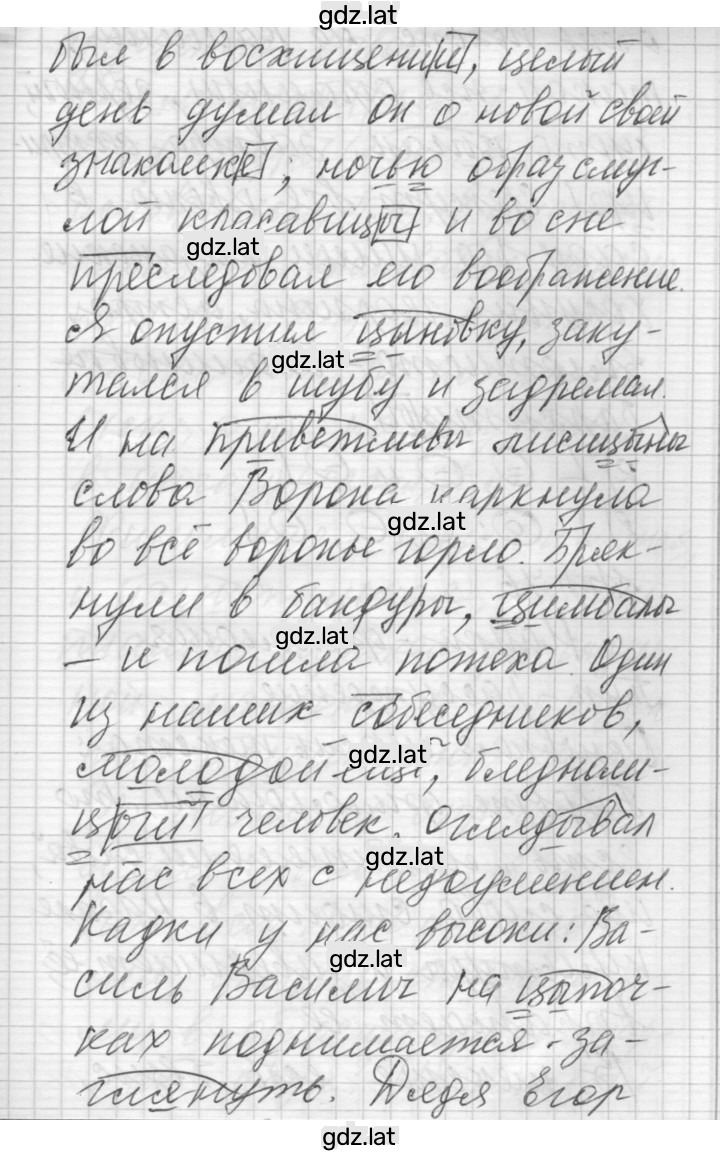 gdz.lat
был в восхищении, целый
день думал он о новой своей
знакомке; ночью образ смуг-
лой красавицы и во сне
gdz.lat
преследовал его воображение.
Я опустил цыновку, заку-
gdz.lat
тался в шубу и задремал.
И на приветливы лисицыны
слова Ворона каркнула
gdz.lat
во всё воронье горло. Бряк-
нули в бандуры, цимбалы
gdz.lat
- и пошла потеха. Один
из наших собеседников,
gdz.lat
молодой ещё, бледноли-
цый человек, оглядывал
gdz.lat
нас всех с недоумением.
Кадки у нас высоки: Ва-
gdz.lat
силь Василич на цыпоч-
ках поднимается - за-
глянуть. Дядя Егор
gdz.lat